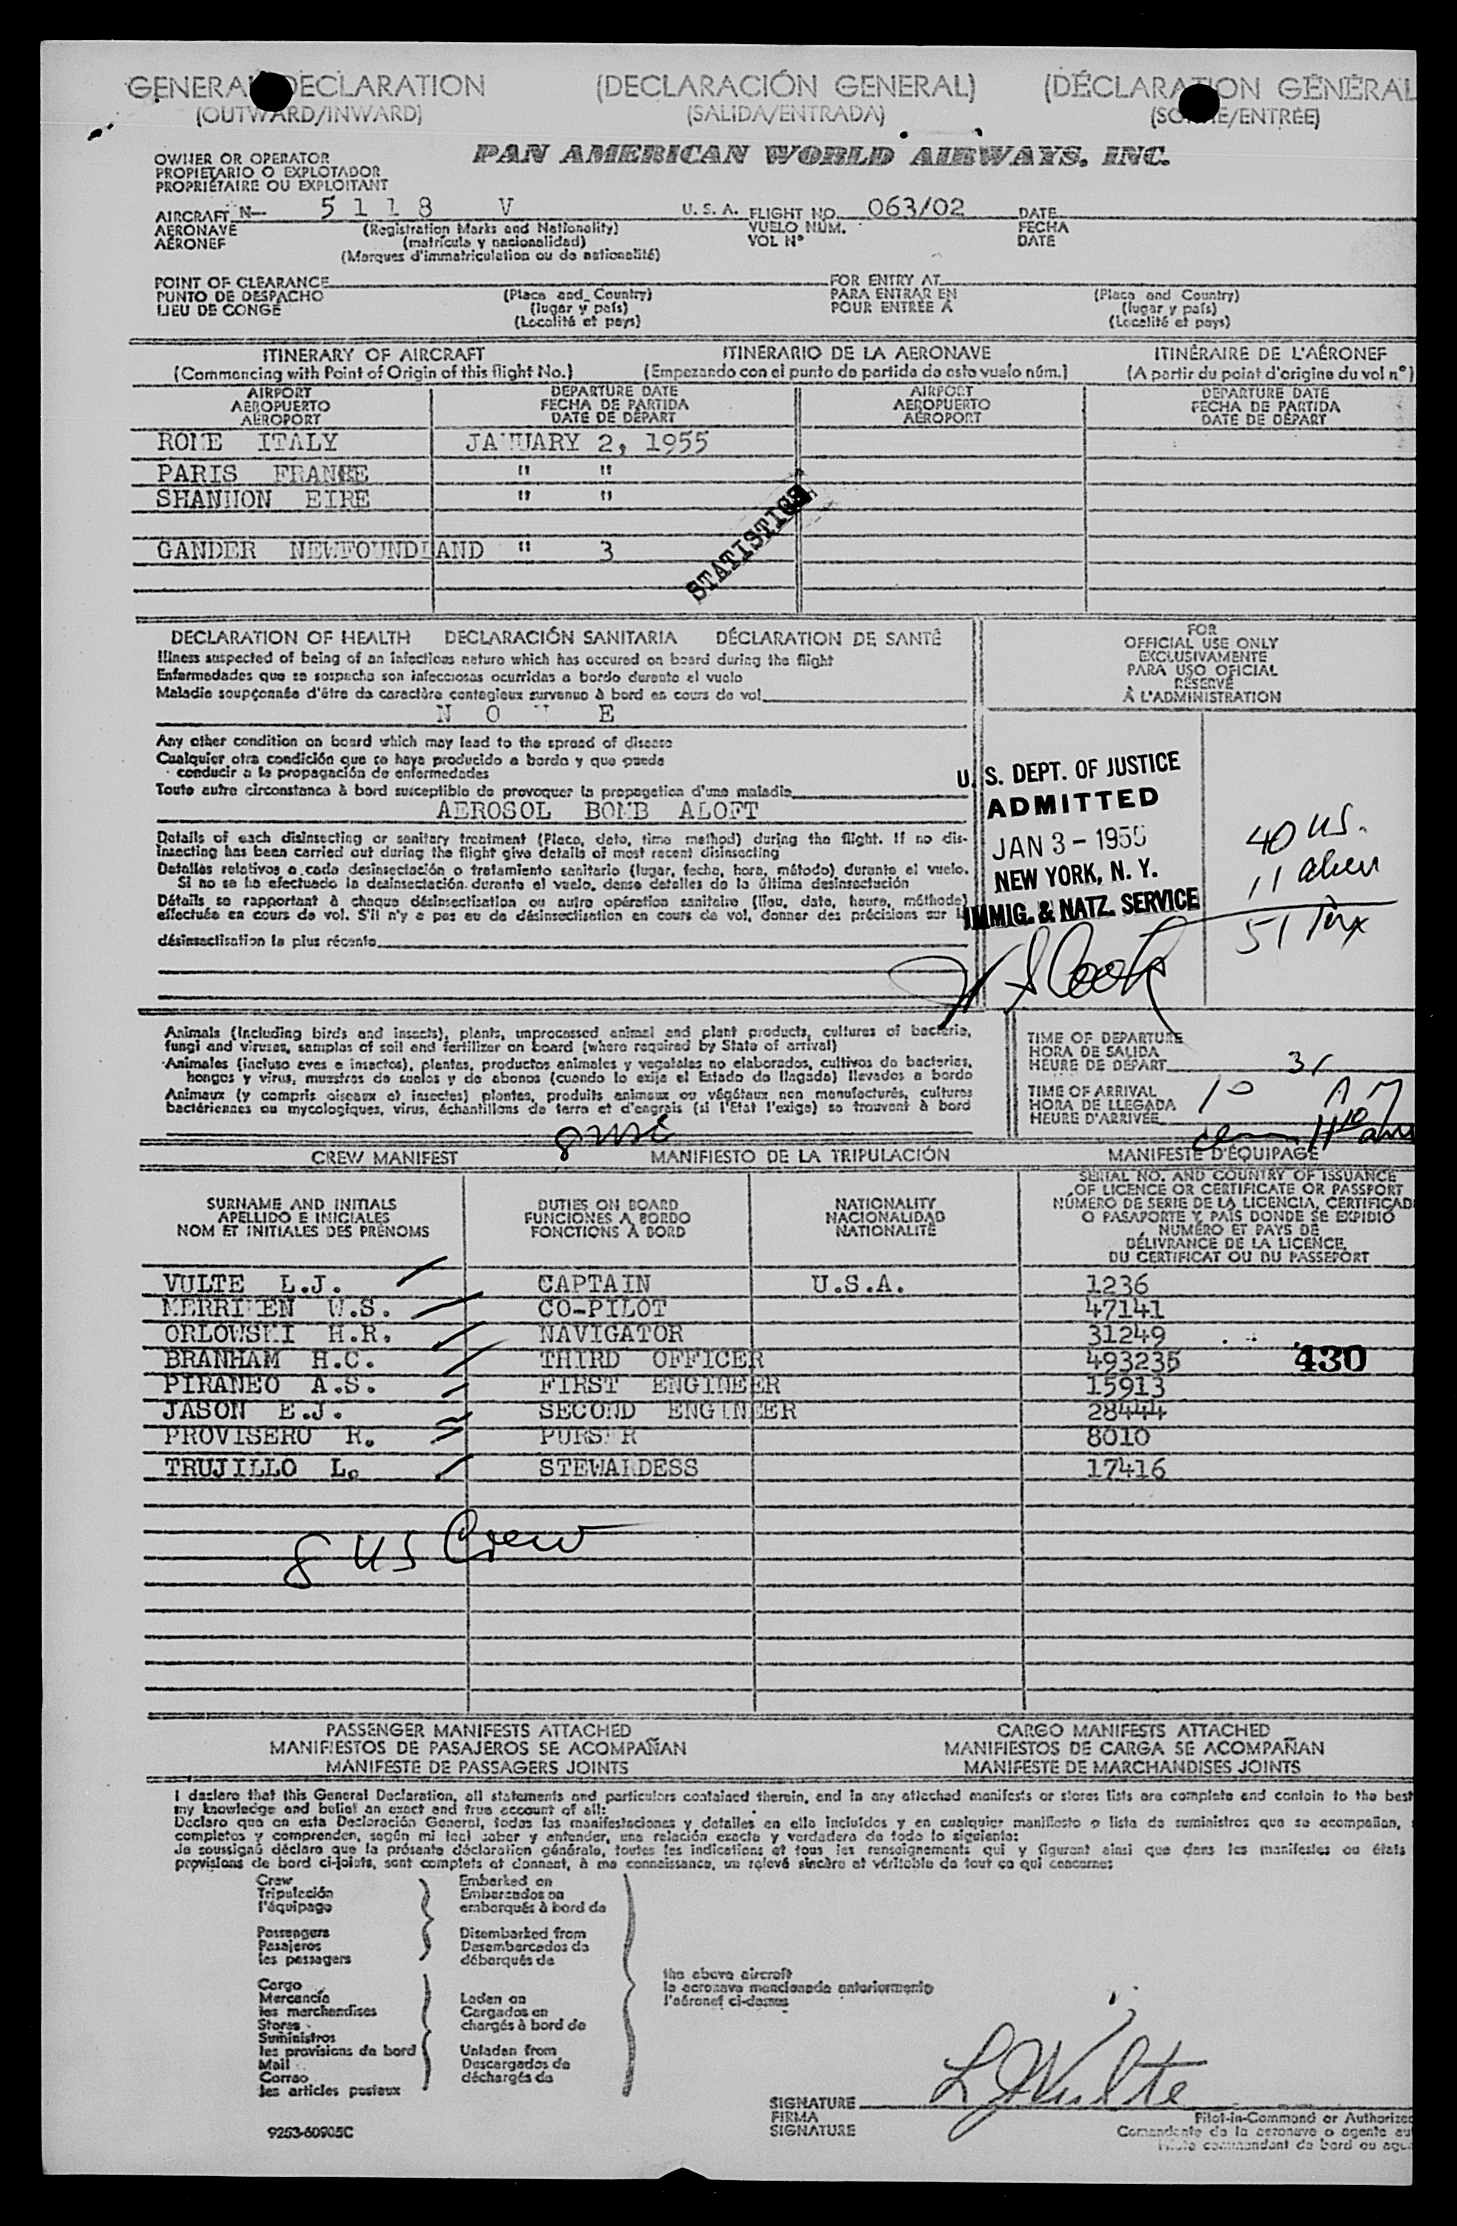 GENERAL DECLARATION (DECLARACIÓN GENERAL) (DÉCLARATION GÉNÉRAL
(OUTWARD/INWARD) (SALIDA/ENTRADA) (SORTIE/ENTRÉE)
OWNER OR OPERATOR PAN AMERICAN WORLD AIRWAYS, INC.
PROPIETARIO O EXPLOTADOR
PROPRIÉTAIRE OU EXPLOITANT
AIRCRAFT N— 5 1 1 8 V U. S. A. FLIGHT NO. 063/02 DATE
AERONAVE (Registration Marks and Nationality) VUELO NÚM. FECHA
AÉRONEF (matrícula y nacionalidad) VOL Nº DATE
(Marques d'immatriculation ou de nationalité)
POINT OF CLEARANCE FOR ENTRY AT
PUNTO DE DESPACHO (Place and Country) PARA ENTRAR EN (Place and Country)
LIEU DE CONGÉ (lugar y país) POUR ENTRÉE À (lugar y país)
(Localité et pays) (Localité et pays)
ITINERARY OF AIRCRAFT ITINERARIO DE LA AERONAVE ITINÉRAIRE DE L'AÉRONEF
(Commencing with Point of Origin of this flight No.) (Empezando con el punto de partida de este vuelo núm.) (A partir du point d'origine du vol nº)
AIRPORT DEPARTURE DATE AIRPORT DEPARTURE DATE
AEROPUERTO FECHA DE PARTIDA AEROPUERTO FECHA DE PARTIDA
AÉROPORT DATE DE DÉPART AÉROPORT DATE DE DÉPART
ROME ITALY JANUARY 2, 1955
PARIS FRANCE " "
SHANNON EIRE " "
STATISTICS
GANDER NEWFOUNDLAND " 3
DECLARATION OF HEALTH DECLARACIÓN SANITARIA DÉCLARATION DE SANTÉ
Illness suspected of being of an infectious nature which has occured on board during the flight
Enfermedades que se sospecha son infecciosas ocurridas a bordo durante el vuelo
Maladie soupçonnée d'être de caractère contagieux survenue à bord en cours de vol
N O N E
FOR
OFFICIAL USE ONLY
EXCLUSIVAMENTE
PARA USO OFICIAL
RÉSERVÉ
À L'ADMINISTRATION
Any other condition on board which may lead to the spread of disease
Cualquier otra condición que se haya producido a bordo y que puede
conducir a la propagación de enfermedades
Toute autre circonstance à bord susceptible de provoquer la propagation d'une maladie
AEROSOL BOMB ALOFT
Details of each disinsecting or sanitary treatment (Place, date, time method) during the flight. If no dis-
insecting has been carried out during the flight give details of most recent disinsecting
Detalles relativos a cada desinsectación o tratamiento sanitario (lugar, fecha, hora, método) durante el vuelo.
Si no se ha efectuado la desinsectación durante el vuelo, dense detalles de la última desinsectación
Détails se rapportant à chaque désinsectisation ou autre opération sanitaire (lieu, date, heure, méthode)
effectuée en cours de vol. S'il n'y a pas eu de désinsectisation en cours de vol, donner des précisions sur la
désinsectisation la plus récente
U. S. DEPT. OF JUSTICE
ADMITTED
JAN 3 - 1955
NEW YORK, N. Y.
IMMIG. & NATZ. SERVICE
40 US.
11 alien
51 Psx
Animals (Including birds and insects), plants, unprocessed animal and plant products, cultures of bacteria,
fungi and viruses, samples of soil and fertilizer on board (where required by State of arrival)
Animales (incluso aves e insectos), plantas, productos animales y vegetales no elaborados, cultivos de bacterias,
hongos y virus, muestras de suelos y de abonos (cuando lo exija el Estado de llegada) llevados a bordo
Animaux (y compris oiseaux et insectes) plantes, produits animaux ou végétaux non manufacturés, cultures
bactériennes ou mycologiques, virus, échantillons de terre et d'engrais (si l'État l'exige) se trouvent à bord
TIME OF DEPARTURE
HORA DE SALIDA
HEURE DE DÉPART 31
TIME OF ARRIVAL 10 AM
HORA DE LLEGADA
HEURE D'ARRIVÉE
CREW MANIFEST MANIFIESTO DE LA TRIPULACIÓN MANIFESTE D'ÉQUIPAGE
SURNAME AND INITIALS DUTIES ON BOARD NATIONALITY
APELLIDO E INICIALES FUNCIONES A BORDO NACIONALIDAD
NOM ET INITIALES DES PRÉNOMS FONCTIONS À BORD NATIONALITÉ
SERIAL NO. AND COUNTRY OF ISSUANCE
OF LICENCE OR CERTIFICATE OR PASSPORT
NÚMERO DE SERIE DE LA LICENCIA, CERTIFICAD
O PASAPORTE Y PAÍS DONDE SE EXPIDIÓ
NUMÉRO ET PAYS DE
DÉLIVRANCE DE LA LICENCE,
DU CERTIFICAT OU DU PASSEPORT
VULTE L.J. CAPTAIN U.S.A. 1236
MERRIMEN W.S. CO-PILOT 47141
ORLOWSKI H.R. NAVIGATOR 31249
BRANHAM H.C. THIRD OFFICER 493235 430
PIRANEO A.S. FIRST ENGINEER 15913
JASON E.J. SECOND ENGINEER 28444
PROVISERO R. PURSER 8010
TRUJILLO L. STEWARDESS 17416
8 US Crew
PASSENGER MANIFESTS ATTACHED CARGO MANIFESTS ATTACHED
MANIFIESTOS DE PASAJEROS SE ACOMPAÑAN MANIFIESTOS DE CARGA SE ACOMPAÑAN
MANIFESTE DE PASSAGERS JOINTS MANIFESTE DE MARCHANDISES JOINTS
I declare that this General Declaration, all statements and particulars contained therein, and in any attached manifests or stores lists are complete and contain to the best
my knowledge and belief an exact and true account of all:
Declaro que en esta Declaración General, todas las manifestaciones y detalles en ella incluídos y en cualquier manifiesto o lista de suministros que se acompañan,
completos y comprenden, según mi leal saber y entender, una relación exacta y verdadera de todo lo siguiente:
Je soussigné déclare que la présente déclaration générale, toutes les indications et tous les renseignements qui y figurent ainsi que dans les manifestes ou états
provisions de bord ci-joints, sont complets et donnent, à ma connaissance, un relevé sincère et véritable de tout ce qui concerne:
Crew Embarked on
Tripulación Embarcados en
l'équipage embarqués à bord de
Passengers Disembarked from
Pasajeros Desembarcados de
les passagers débarqués de
the above aircraft
la aeronave mencionada anteriormente
l'aéronef ci-dessus
Cargo
Mercancía Laden on
les marchandises Cargados en
Stores chargés à bord de
Suministros
les provisions de bord Unladen from
Mail Descargados de
Correo déchargés de
les articles postaux
SIGNATURE L J Vulte
FIRMA Pilot-in-Command or Authorized
SIGNATURE Comandante de la aeronave o agente au
Pilote commandant de bord ou age
9253-60905C